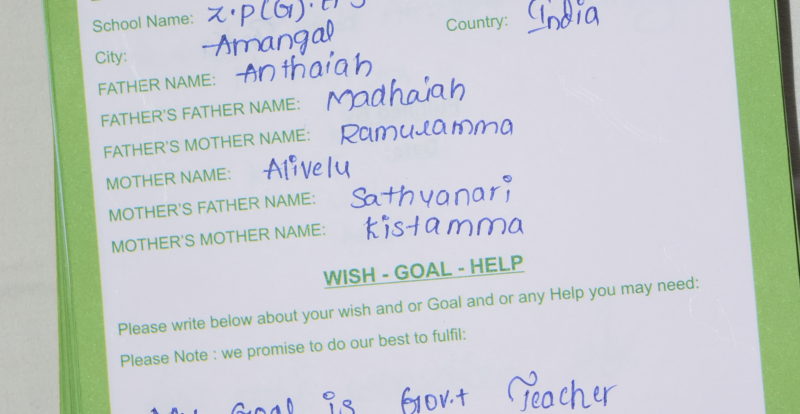 School Name: Z.P(G).H.S Country: India
City: Amangal
FATHER NAME: Anthaiah
FATHER'S FATHER NAME: Madhaiah
FATHER'S MOTHER NAME: Ramulamma
MOTHER NAME: Alivelu
MOTHER'S FATHER NAME: Sathyanari
MOTHER'S MOTHER NAME: Kistamma
WISH - GOAL - HELP
Please write below about your wish and or Goal and or any Help you may need:
Please Note : we promise to do our best to fulfil:
My Goal is Govt Teacher